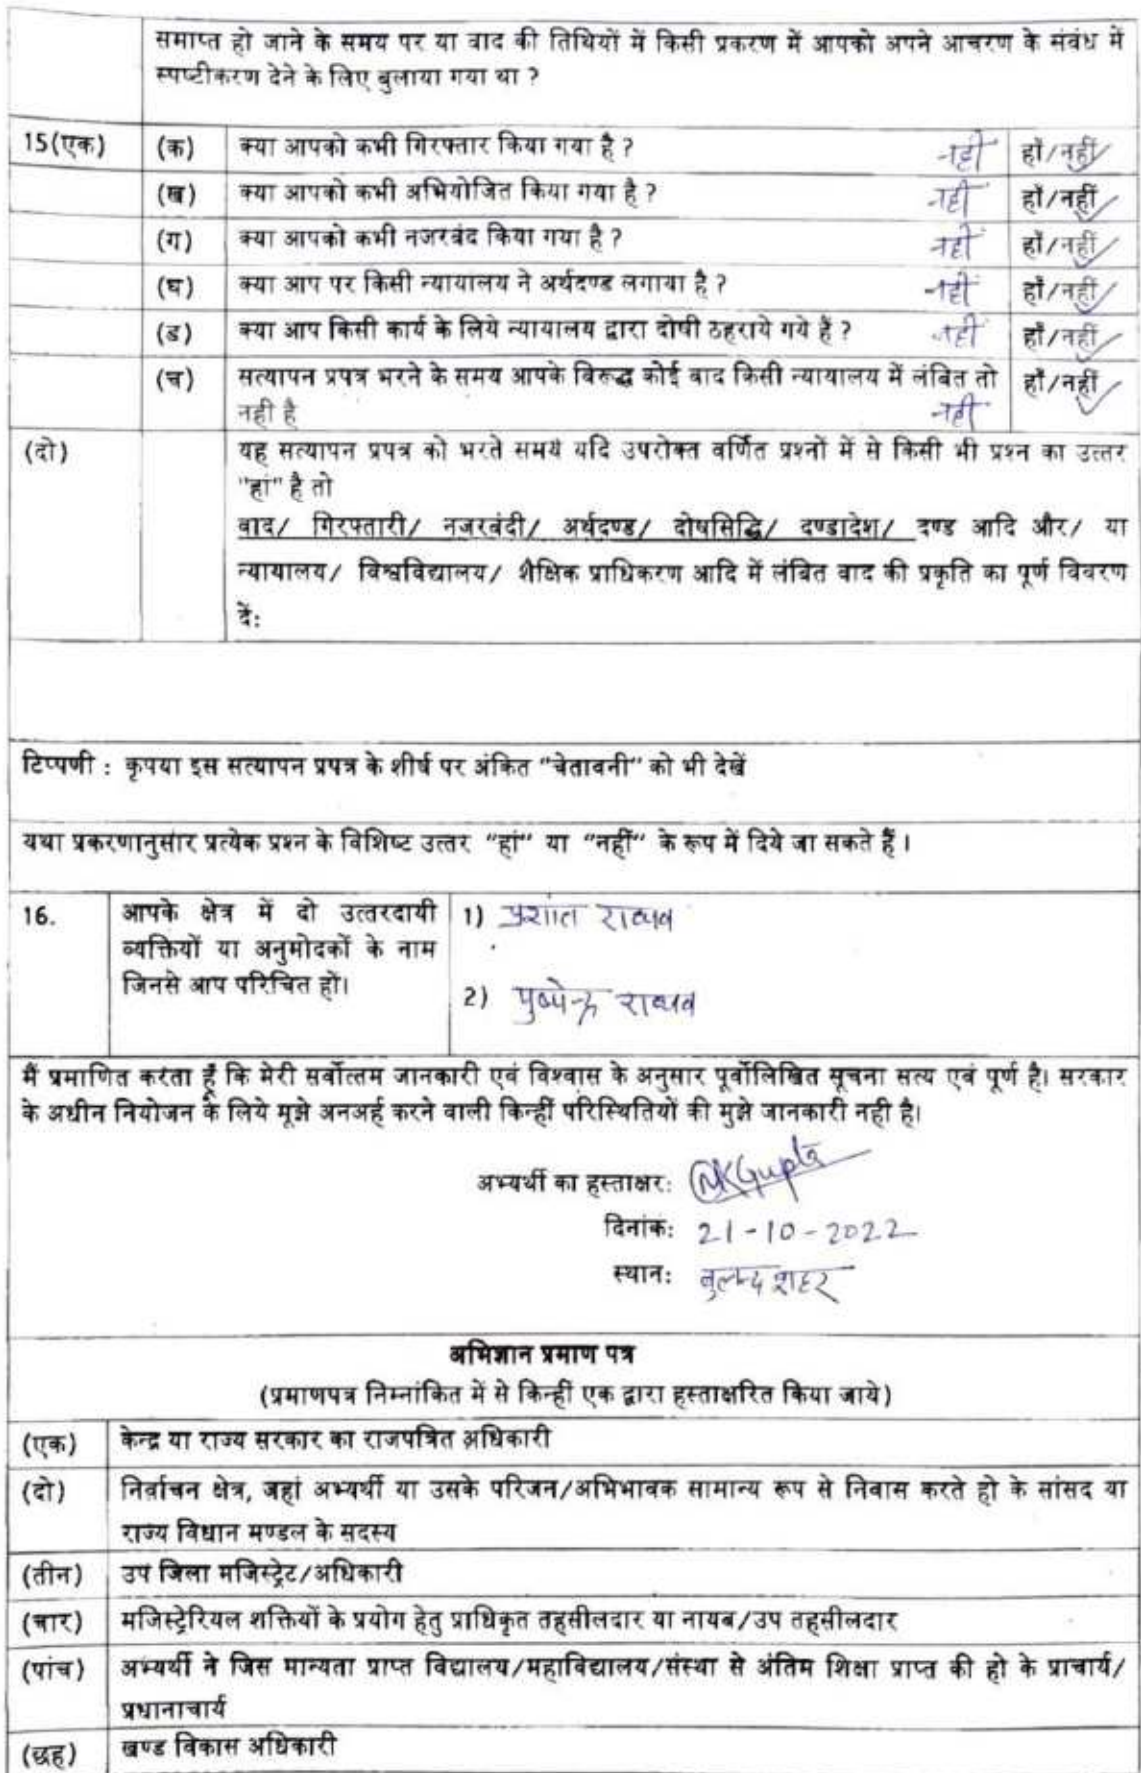 समाप्त हो जाने के समय पर या वाद की तिथियों में किसी प्रकरण में आपको अपने आचरण के संबंध में
स्पष्टीकरण देने के लिए बुलाया गया था ?
15(एक) (क) क्या आपको कभी गिरफ्तार किया गया है ? नहीं हाँ/नहीं
(ख) क्या आपको कभी अभियोजित किया गया है ? नहीं हाँ/नहीं
(ग) क्या आपको कभी नजरबंद किया गया है ? नहीं हाँ/नहीं
(घ) क्या आप पर किसी न्यायालय ने अर्थदण्ड लगाया है ? नहीं हाँ/नहीं
(ड) क्या आप किसी कार्य के लिये न्यायालय द्वारा दोषी ठहराये गये हैं ? नहीं हाँ/नहीं
(च) सत्यापन प्रपत्र भरने के समय आपके विरूद्ध कोई वाद किसी न्यायालय में लंबित तो हाँ/नहीं
नही है नहीं
(दो) यह सत्यापन प्रपत्र को भरते समय यदि उपरोक्त वर्णित प्रश्नों में से किसी भी प्रश्न का उत्तर
"हां" है तो
वाद/ गिरफ्तारी/ नजरबंदी/ अर्थदण्ड/ दोषसिद्धि/ दण्डादेश/ दण्ड आदि और/ या
न्यायालय/ विश्वविद्यालय/ शैक्षिक प्राधिकरण आदि में लंबित वाद की प्रकृति का पूर्ण विवरण
दें:
टिप्पणी : कृपया इस सत्यापन प्रपत्र के शीर्ष पर अंकित "चेतावनी" को भी देखें
यथा प्रकरणानुसार प्रत्येक प्रश्न के विशिष्ट उत्तर "हां" या "नहीं" के रूप में दिये जा सकते हैं ।
16. आपके क्षेत्र में दो उत्तरदायी 1) प्रशांत राघव
व्यक्तियों या अनुमोदकों के नाम
जिनसे आप परिचित हों। 2) पुष्पेन्द्र राघव
मैं प्रमाणित करता हूँ कि मेरी सर्वोत्तम जानकारी एवं विश्वास के अनुसार पूर्वोलिखित सूचना सत्य एवं पूर्ण है। सरकार
के अधीन नियोजन के लिये मूझे अनअर्ह करने वाली किन्हीं परिस्थितियों की मुझे जानकारी नही है।
अभ्यर्थी का हस्ताक्षर: NKGupta
दिनांक: 21-10-2022
स्थान: बुलन्दशहर
अभिज्ञान प्रमाण पत्र
(प्रमाणपत्र निम्नांकित में से किन्हीं एक द्वारा हस्ताक्षरित किया जाये)
(एक) केन्द्र या राज्य सरकार का राजपत्रित अधिकारी
(दो) निर्वाचन क्षेत्र, जहां अभ्यर्थी या उसके परिजन/अभिभावक सामान्य रूप से निवास करते हो के सांसद या
राज्य विधान मण्डल के सदस्य
(तीन) उप जिला मजिस्ट्रेट/अधिकारी
(चार) मजिस्ट्रेरियल शक्तियों के प्रयोग हेतु प्राधिकृत तहसीलदार या नायब/उप तहसीलदार
(पांच) अभ्यर्थी ने जिस मान्यता प्राप्त विद्यालय/महाविद्यालय/संस्था से अंतिम शिक्षा प्राप्त की हो के प्राचार्य/
प्रधानाचार्य
(छह) खण्ड विकास अधिकारी